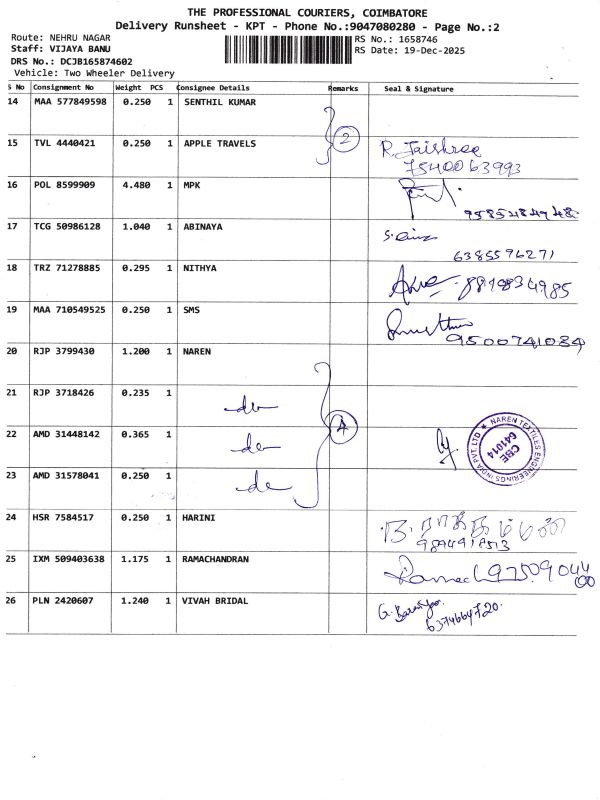 THE PROFESSIONAL COURIERS, COIMBATORE
Delivery Runsheet - KPT - Phone No.:9047080280 - Page No.:2
Route: NEHRU NAGAR
RS No.: 1658746
Staff: VIJAYA BANU
RS Date: 19-Dec-2025
DRS No.: DCJB165874602
Vehicle: Two Wheeler Delivery
S No Consignment No Weight PCS Consignee Details Remarks Seal & Signature
14 MAA 577849598 0.250 1 SENTHIL KUMAR
2
15 TVL 4440421 0.250 1 APPLE TRAVELS R. Jaishree
7540063993
16 POL 8599909 4.480 1 MPK
17 TCG 50986128 1.040 1 ABINAYA
6385596271
18 TRZ 71278885 0.295 1 NITHYA
19 MAA 710549525 0.250 1 SMS
9500741084
20 RJP 3799430 1.200 1 NAREN
21 RJP 3718426 0.235 1
22 AMD 31448142 0.365 1
NAREN TEXTILES ENGINEERINGS INDIA PVT. LTD ★
CBE
641014
23 AMD 31578041 0.250 1
24 HSR 7584517 0.250 1 HARINI
25 IXM 509403638 1.175 1 RAMACHANDRAN
26 PLN 2420607 1.240 1 VIVAH BRIDAL
6374664720